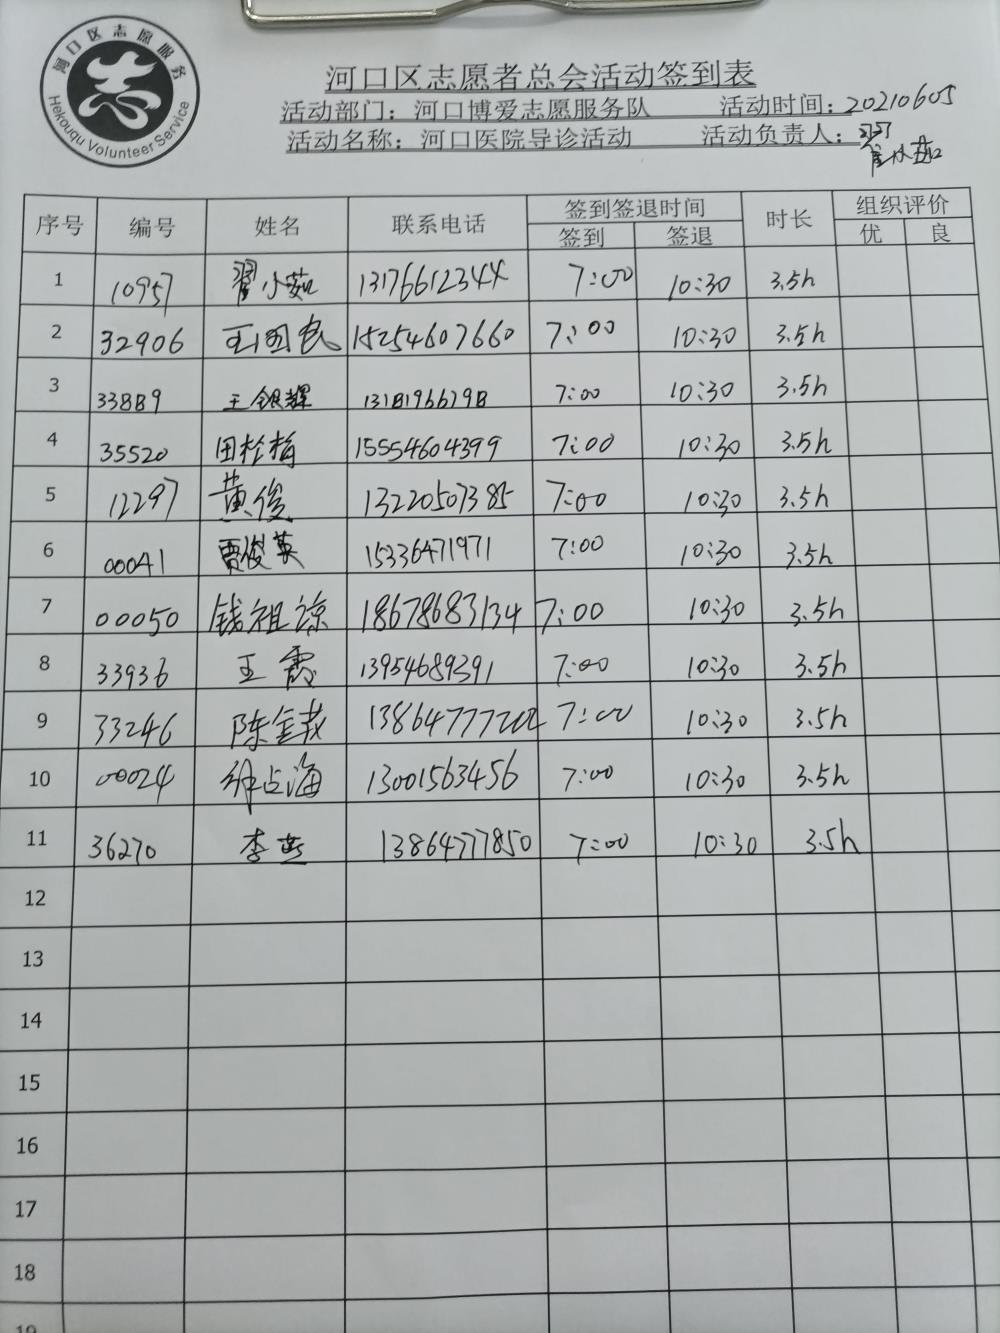 河口区志愿服务
Hekouqu Volunteer Service
河口区志愿者总会活动签到表
活动部门：河口博爱志愿服务队 活动时间：20210605
活动名称：河口医院导诊活动 活动负责人：翟小茹
序号 编号 姓名 联系电话 签到签退时间 时长 组织评价
签到 签退 优 良
1 10957 翟小茹 13176612344 7:00 10:30 3.5h
2 32906 王国民 15254607660 7:00 10:30 3.5h
3 33889 王银辉 13181966798 7:00 10:30 3.5h
4 35520 田桂梅 15554604399 7:00 10:30 3.5h
5 12297 黄俊 13220507385 7:00 10:30 3.5h
6 00041 贾俊英 15336471971 7:00 10:30 3.5h
7 00050 钱祖凉 18678683134 7:00 10:30 3.5h
8 33936 王霞 13954689391 7:00 10:30 3.5h
9 33246 陈金 13864777202 7:00 10:30 3.5h
10 00024 占海 13001563456 7:00 10:30 3.5h
11 36270 李燕 13864777850 7:00 10:30 3.5h
12
13
14
15
16
17
18
19